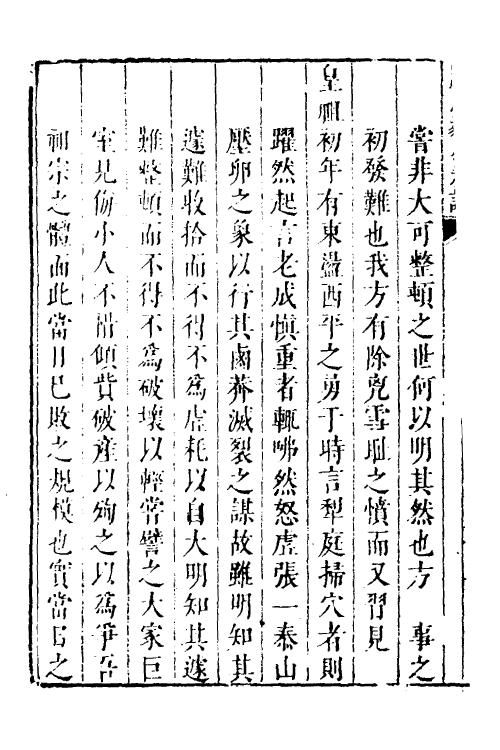 嘗非大可整頓之世何以明其然也方　事之
初發難也我方有除兇雪恥之憤而又習見
皇祖初年有東盪西平之勇于時言犁庭掃穴者則
躍然起言老成慎重者輒咈然怒虛張一泰山
壓卵之象以行其鹵莽滅裂之謀故雖明知其
遽難收拾而不得不爲虛耗以自大明知其遽
難整頓而不得不爲破壞以輕嘗譬之大家巨
室見侮小人不惜傾貲破產以殉之以爲爭吾
祖宗之體面此當日已敗之規模也實當日之